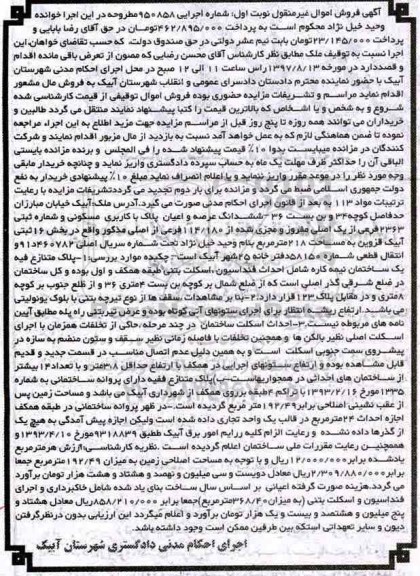 آگهی فروش اموال غیرمنقول نوبت اول، شماره اجرایی ۹۵۰۸۵۸ مطروحه در این اجرا خوانده
وحید خیل نژاد محکوم است به پرداخت ۴۶۲/۸۹۵/۰۰۰تومان در حق آقای رضا بابایی و
پرداخت ۲۳/۱۴۵/۰۰۰تومان بابت نیم عشر دولتی در حق صندوق دولت، که حسب تقاضای خواهان، این
اجرا نسبت به توقیف ملک مطابق نظر کارشناس آقای محسن رضایی که مصون از تعرض باقی مانده اقدام
و قصد دارد در مورخه ۱۳۹۷/۸/۱۳ راس ساعت ۱۱ الی ۱۲ صبح در محل اجرای احکام مدنی شهرستان
آبیک با حضور نماینده محترم دادستان دادسرای عمومی و انقلاب شهرستان آبیک به فروش مال مشهور
اقدام نماید مراسم و تشریفات مزایده حضوری بوده فروش اموال توقیفی از قیمت کارشناسی شده
شروع و به شخص و یا اشخاص که بالاترین قیمت را کتبا پیشنهاد نمایند منتقل می گردد طالبین و
خریداران می توانند همه روزه تا پنج روز قبل از مراسم مزایده جهت مزید اطلاع به این اجراء مراجعه
نموده تا ضمن هماهنگی لازم که به عمل خواهد آمد نسبت به بازدید از مال مزبور اقدام نمایند و شرکت
کنندگان در مزایده میبایست بدوا ۱۰٪ قیمت پیشنهاد شده را فی المجلس و برنده مزایده بایستی
الباقی آن را حداکثر ظرف مهلت یک ماه به حساب سپرده دادگستری واریز نماید و چنانچه خریدار مابقی
وجه مورد نظر را در موعد مقرر واریز ننماید و یا اعلام انصراف نماید مبلغ ۱۰٪ پیشنهادی خریدار به نفع
دولت جمهوری اسلامی ضبط می گردد و مزایده برای بار دوم تجدید می گردد تشریفات مزایده با رعایت
ترتیبات مواد ۱۱۳ به بعد از قانون اجرای احکام مدنی صورت می گیرد. آدرس ملک: آبیک خیابان مبارزان
حدفاصل کوچه ۳۴ و بن بست ۳۶ -ششدانگ عرصه و اعیان پلاک با کاربری مسکونی و شماره ثبتی
۲۳۶۳ فرعی از یک اصلی مفروز و مجزی شده از ۱۱۴/۱۸۰ فرعی از اصلی مذکور واقع در بخش ۱۶ ثبتی
آبیک قزوین به مساحت ۲۱۸ مترمربع بنام وحید خیل نژاد تحت شماره سریال اصلی
انتقال قطعی شماره ۵۸۱۵۰ دفتر خانه ۲۵ شهر آبیک است. چکیده موارد بررسی: ۱-پلاک متنازع فیه
یک ساختمان نیمه کاره شامل احداث فنداسیون ،اسکلت بتنی طبقه همکف و اول بوده و کل ساختمان
در ضلع شرقی گذر اصلی است که از ضلع شمال پر کوچه بن بست ۴متری ۳۶ و از ظلع جنوب پر کوچه
۸متری و در مقابل پلاک ۱۲۳ قرار دارد. ۲-بنا بر مشاهدات سقف ها از نوع تیرچه بتنی با بلوک یونولیتی
می باشد. ارتفاع ریشه انتظار برای اجرای ستونهای آتی کوتاه بوده و عرض تیربتنی راه پله مطابق آیین
نامه های مربوطه نیست. ۳-احداث اسکلت ساختمان در چند مرحله، حاکی از تخلفات همزمان با اجرای
اسکلت اصلی نظیر بالکن ها و همچنین تخلفات با فاصله زمانی نظیر سقف و ستون منضم به سازه در
پیشروی سمت جنوبی اسکلت است و به همین دلیل عدم اتصال مناسب در قسمت جدید و قدیم
قابل مشاهده بوده و ارتفاع ستونهای اجرایی در همکف با ارتفاع حداقل ۳۸متر و با تعداد ۱۴ بیشتر
از ساختمان های احداثی در همجوار یهاست.ب)پلاک متنازع فقیه دارای پروانه ساختمانی به شماره
۱۳۳۵ مورخ ۱۳۹۳/۲/۱۶ با تراکم ۴طبقه برروی همکف از شهرداری آبیک می باشد و مساحت زمین پس
از عقب نشینی اصلاحی برابر ۱۹۲/۴۹ متر مربع گردیده است.-در ظهر پروانه ساختمانی در طبقه همکف
اجازه احداث ۲۴مترمربع در قالب یک واحد تجاری داده شده است ولیکن اجازه پیش آمدگی به هیچ یک
از گذرها داده نشده و رعایت الزام کلیه رایم امور برق آبیک طبق ۹۳۱۸۸۳۹مورخ ۱۳۹۳/۴/۱۰ و
همچنین رعایت مقررات ملی ساختمان اعلام گردیده است .نظریه کارشناسی:ارزش هرمترمربع
یادشده برابر ۱۲/۰۰۰/۰۰۰ ریال و با توجه به مساحت اصلاحی زمین به میزان ۱۹۲/۴۹ مترمربع جمعا
برابر ۲/۳۰۹/۸۸۰/۰۰۰ ریال معادل دویست و سی میلیون و نهصد و هشتاد و هشت هزار تومان برآورد
می گردد.هزینه صورت گرفته اعیانی بر اساس سال ساخت بنای یاد شده شامل خاکبرداری و اجرای
فنداسیون و اسکلت بتنی (به میزان ۳۶۸/۴۰مترمربع)جمعا برابر ۸۵۸/۲۱۰/۰۰۰ریال معادل هشتاد و
پنج میلیون و هشتصد و بیست و یک هزار تومان برآورد و اعلام میگردد این ارزیابی بدون درنظرگرفتن
دیون و سایر تعهداتی استکه بین طرفین ممکن است وجود داشته باشد.
اجرای احکام مدنی دادگستری شهرستان آبیک